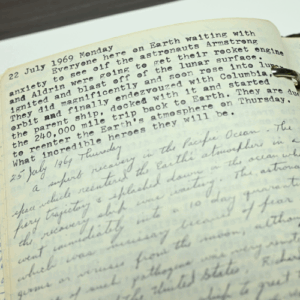 22 July 1969 Monday
Everyone here on Earth waiting with
anxiety to see if the astronauts Armstrong
and Aldrin were going to get their rocket engine
ignited and blast off of the lunar surface.
They did and soon rose into
orbit and finally endezvoued with Columbia,
the parent ship, docked with it and started
the 240,000 mile trip back to Earth. They are du
to reenter the Earth's atmosphere on Thursday.
What incredible heroes they will be.
25 July 1969 Thursday
A superb recovery in the Pacific Ocean. The
reentered the Earth's atmosphere in a
fiery trajectory & splashed down in the ocean
the recovery ship were waiting. The
went immediately into a 10 day
which was necessary because of fear
germs or viruses from the moon,
of such pathogens was very
the United States, Richard
to greet